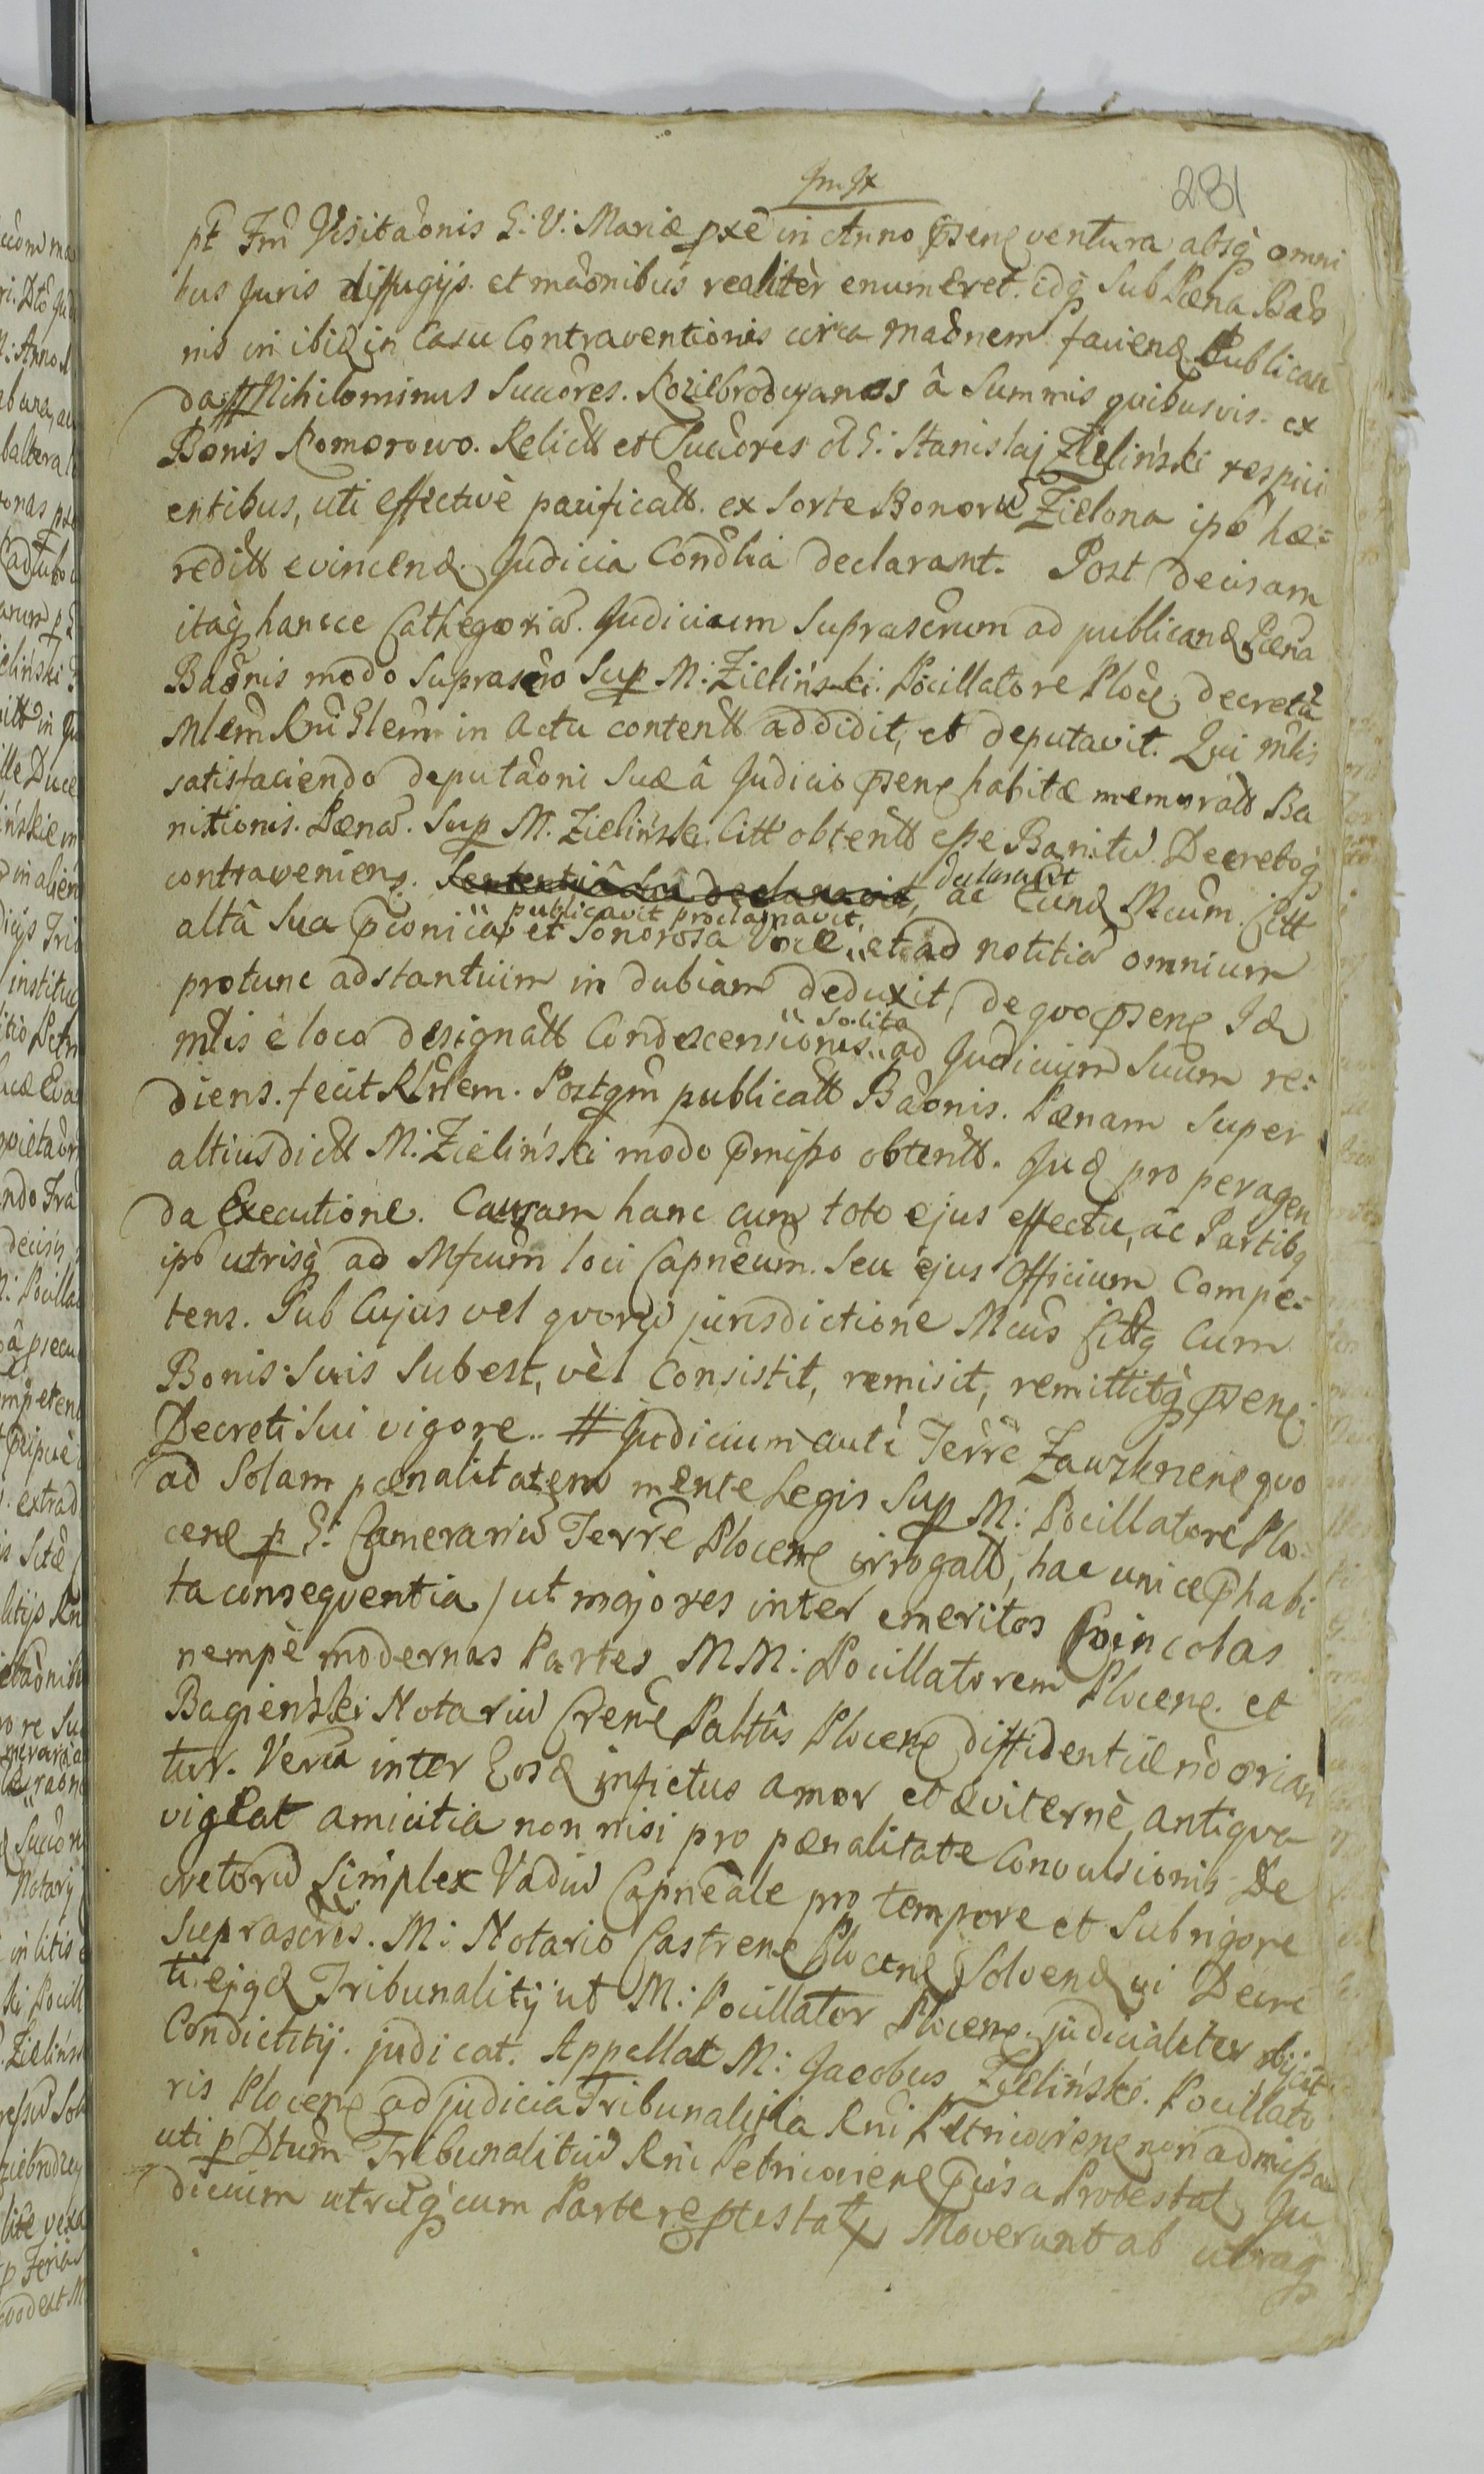 281
pt Fm Visitaōnis S: V: Mariæ pxē in Anno pseñ ventura absq̀ omni
bus Juris diffugijs et māonibus realitèr enumeret. idq̀ Sub Pæna Bāō
nis in ibid in Casu Contraventionis circa māōnem faciend. Publican
da # Nihilominus Succōres. Koziebrodzyanos â Summis quibusvis ex
Bonis Komorowo. Relictt et Succōres ol G: Stanislaj Zieliński respici
entibus, uti effectivè pacificatt. ex Sorte Bonorū Zielona ipō hæ:
redítt evincend. Judicia Condlia declarant. Post decisam
itaq̀ hancce Cathegoriā. Judicium Suprascrum ad publicand Pæna
Bāōnis modo Suprascro Sup M: Zieliński. Pocillatore Ploc̄. decretā
Mlem Rnī Glem in Actu contentt addidit, et deputavit. Qui mlis
satisfaciendo deputāōni Suæ â Judicio pseñ habitæ memoratt Ba
nitionis. Pænā. Sup M. Zieliński Citt obtentt esse Banitū Decretoq̀
contravenien. Sententiâ Suâ declaravit, declaravit ac Eund Mcum. Citt
altâ Sua pconica et Sonorosa Voce publicavit proclamavit, et ad notitiā omnium
protunc adstantium in dubiam deduxit, de quo pseñ Id
mlis è loco designatt Condescensionis solita ad Judicium Suum re:
diens. fecit Rlnem. Postqm publicatt Bāōnis. Pænam Super
altius dictt M: Zieliński modo pmisso obtentt. Jud pro peragen
da Executione. Causam hanc cum toto ejus effectu, ac Partibq
ipō utrisq̀ ad Mfcum loci Capneum. Seu ejus Officium Compe:
tens. Sub Cujus vel quorū jurisdictione Mcus Cittq Cum
Bonis Suis Subest, vèl Consistit, remisit, remittitq̀ pseñ.
Decreti Sui vigore.. # Judicium autē Terrē Zawskrieñ quo
ad Solam pænalitatem mente Legis Sup M: Pocillatore Plo
ceñ p G: Camerariū Terrē Ploceñ irrogatt, hac unice phabi
ta consequentia / ut majores inter emeritos Coincolas
nempè modernas Partes MM: Pocillatorem Ploceñ. et
Bagieński Notariū Creñ Palttūs Ploceñ diffidentiæ nō orian
tur. Verū inter Eosd infictus amor et æviternè antiqua
vigeat amicitia non nisi pro pænalitate Convulsionis De
cretorū Simplex Vadiū Capneāle pro tempore et Sub rigore
Suprascris. M: Notario Castreñ Ploceñ Solvend vi Decre
ti ejqd Tribunalitij ut M: Pocillator Ploceñ. judicialiter
Condictitij. judicat. Appellat M: Jacobus Zieliński. Pocillato
ris Ploceñ ad judicia Tribunalitia Rni Petricovieñ non admissa
uti p Dtum Tribunalitiū Rni Petricovieñ pcisa Protestat, Ju
dicium utrūq̀ cum Parte reptestat Moverunt ab utraq̀